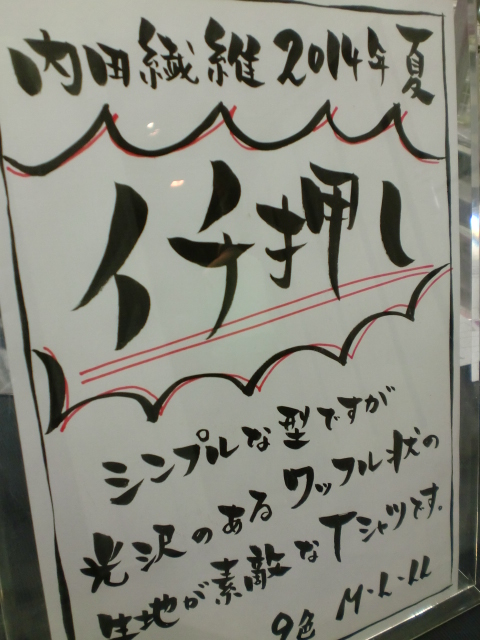 内田繊維2014年夏
イチ押し
シンプルな型ですが
光沢のあるワッフル状の
生地が素敵なTシャツです。
9色 M・L・LL